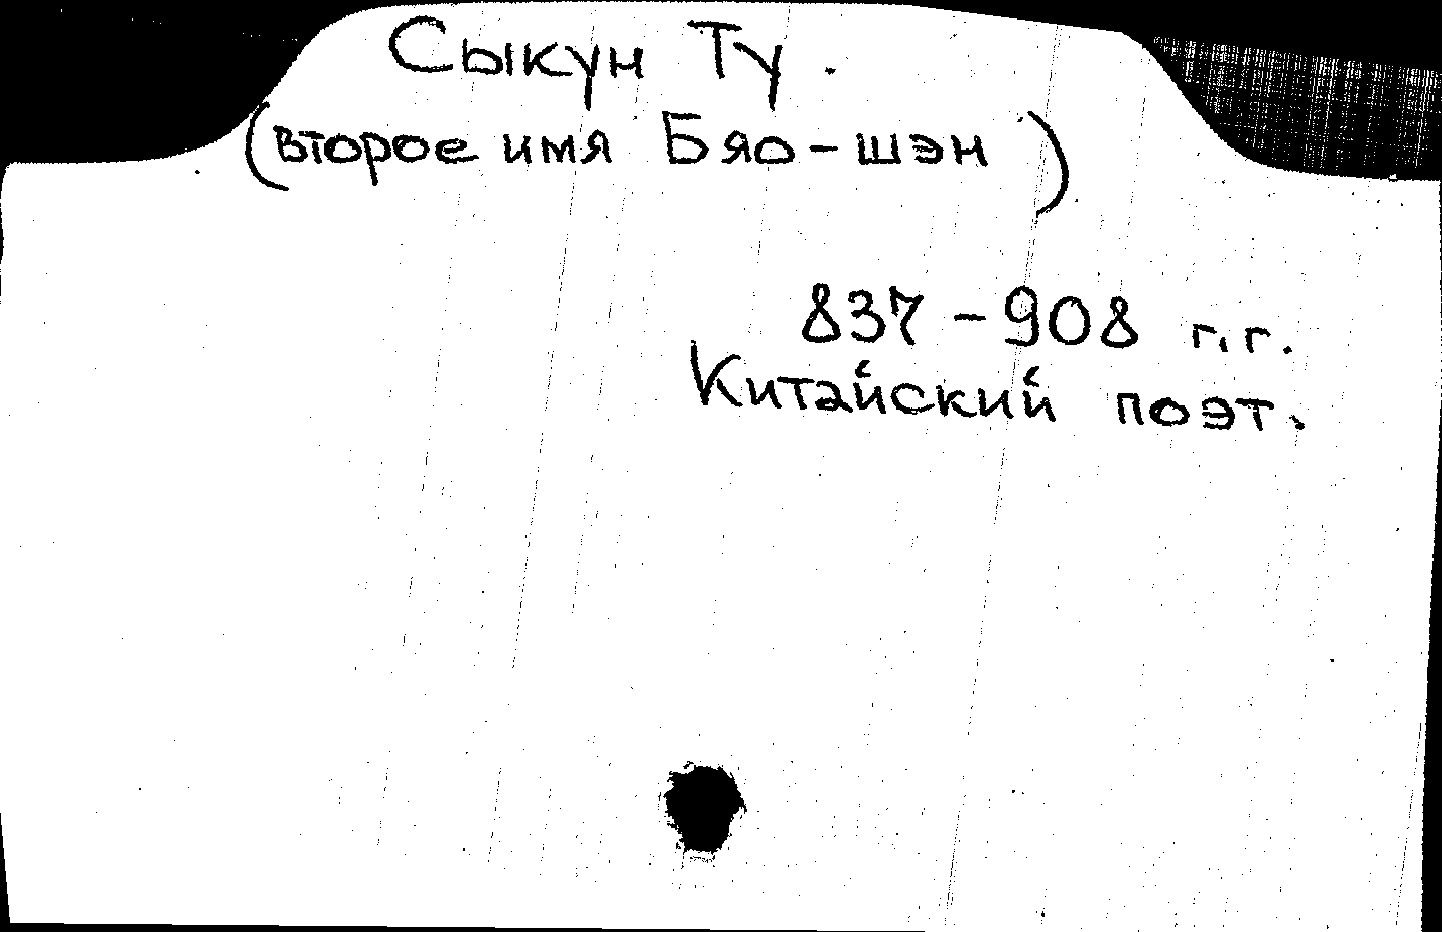 Сыкун Ту.
(второе имя Бяо-шэн)
837-908 г.г.
Китайский поэт.